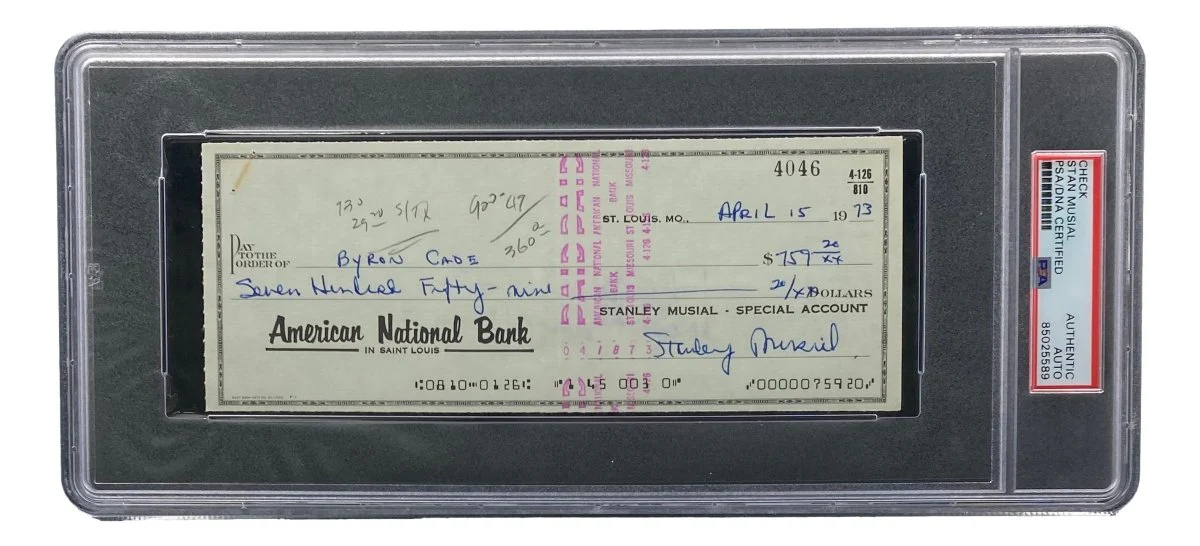 4046
4-126
810
730
29 20 S/TX
360
ST. LOUIS, MO., APRIL 15 1973
PAY
TO THE
ORDER OF BYRON CADE $759 20/XX
Seven Hundred Fifty-nine 20/XX DOLLARS
STANLEY MUSIAL - SPECIAL ACCOUNT
American National Bank
IN SAINT LOUIS
Stanley Musial
041873
AMERICAN NATIONAL
BANK
ST. LOUIS MISSOURI
4-126
⑆0810⑉0126⑆ ⑈145 003 0⑈ ⑇0000075920⑇
CHECK
STAN MUSIAL
PSA/DNA CERTIFIED
PSA
AUTHENTIC
AUTO
85025589